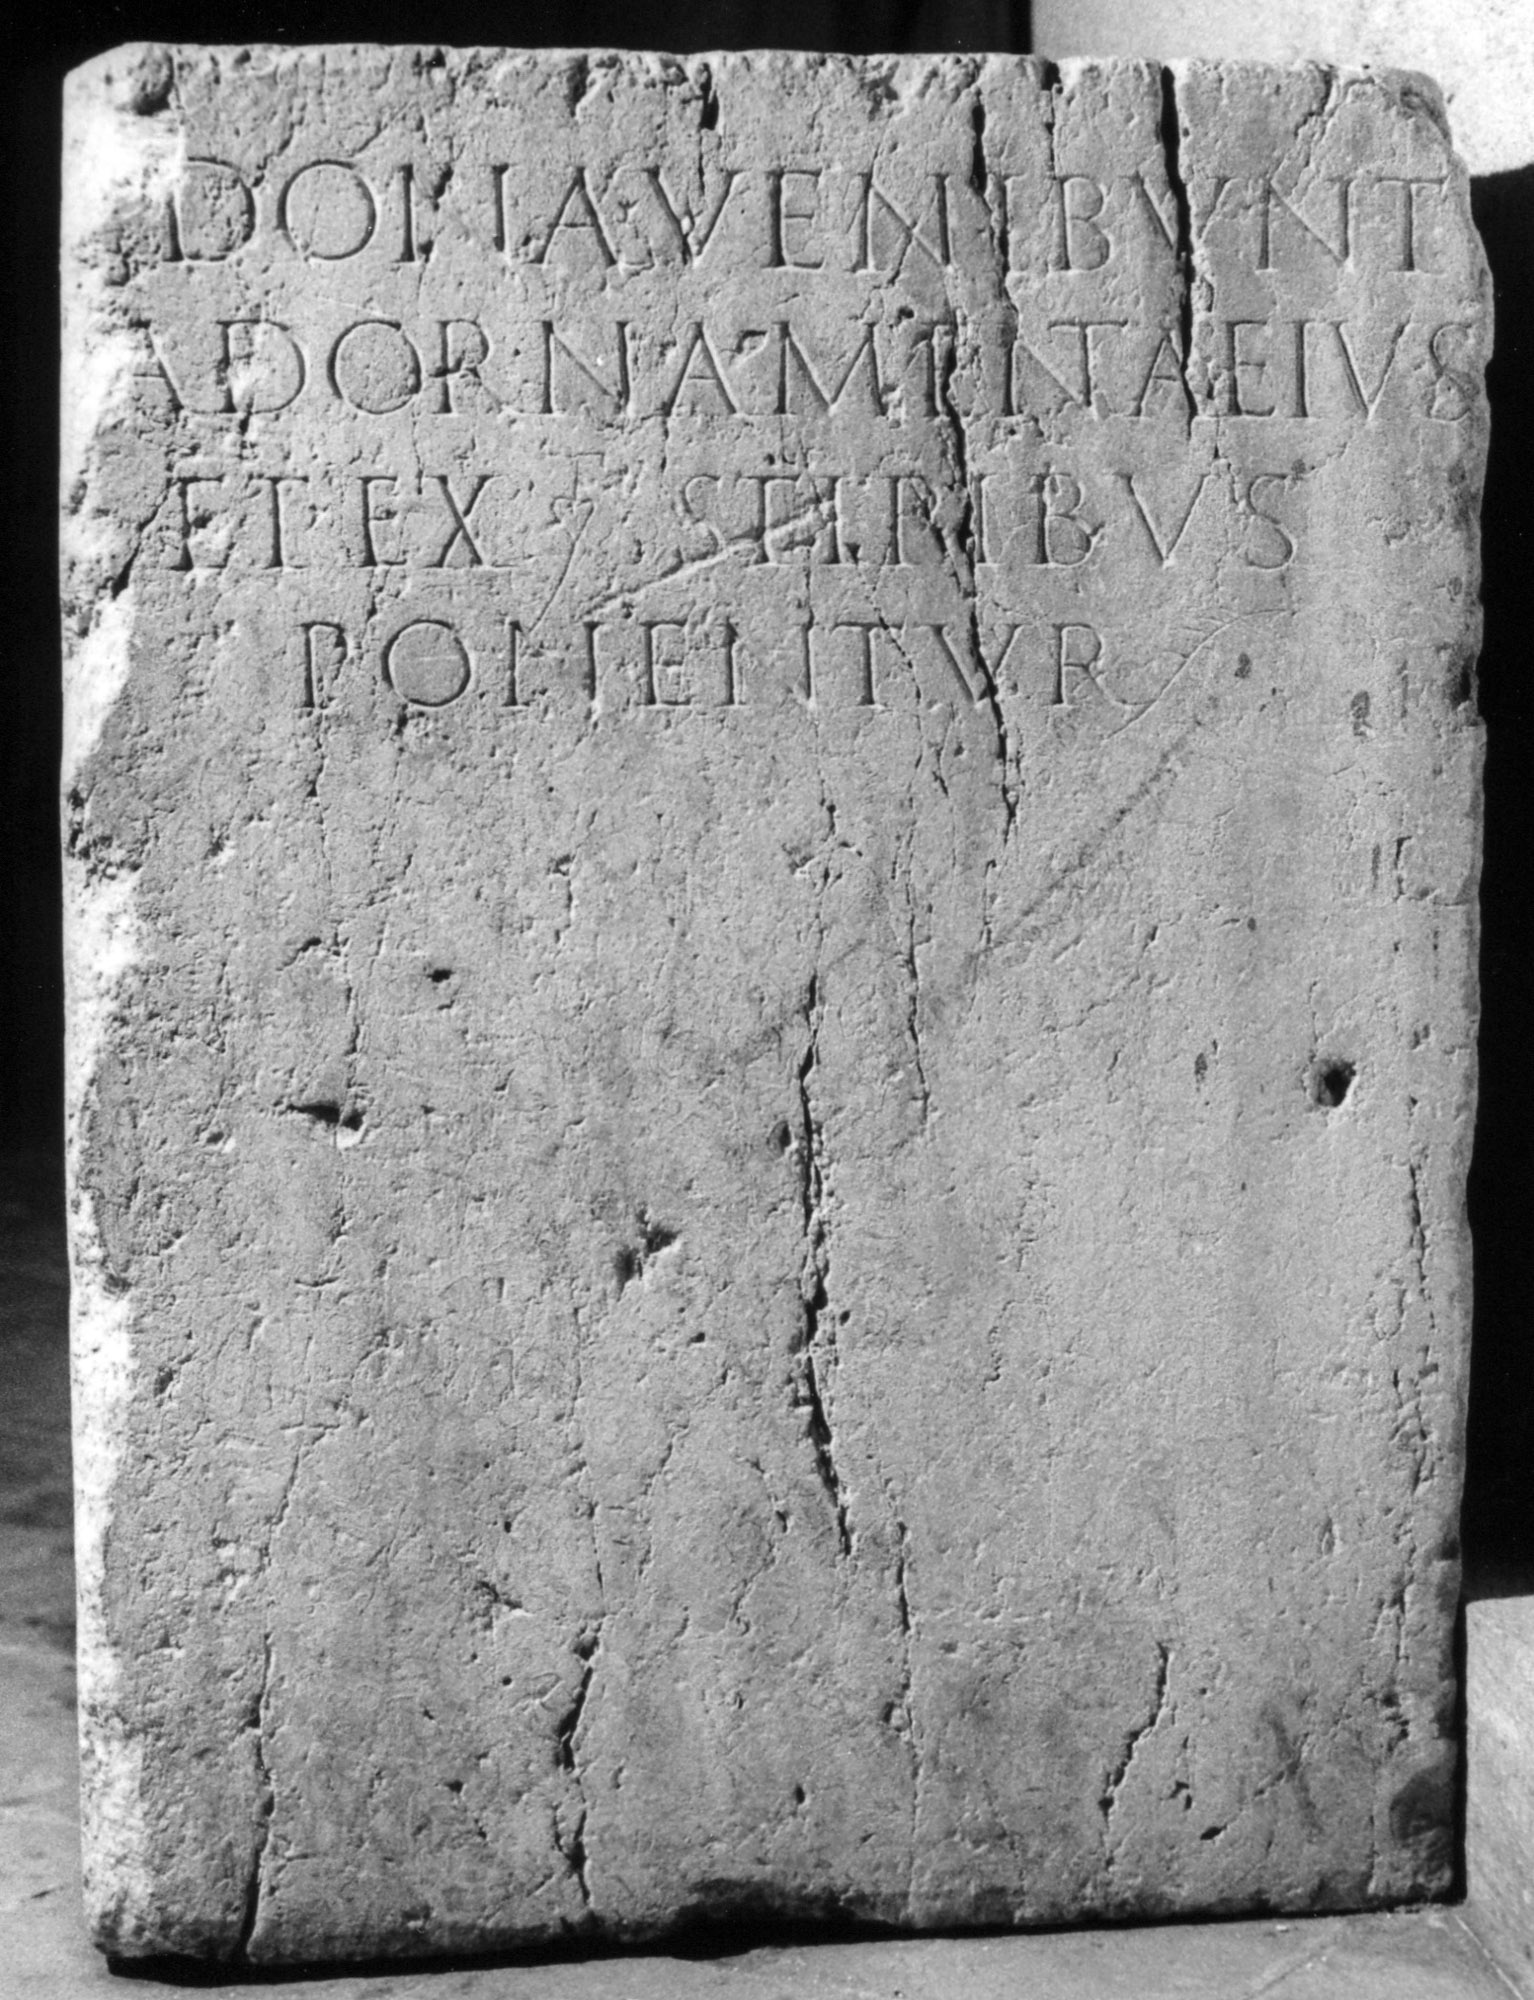 DONA VENIBVNT
AD ORNAMENTA EIVS
ET EX STIPIBVS
PONENTVR